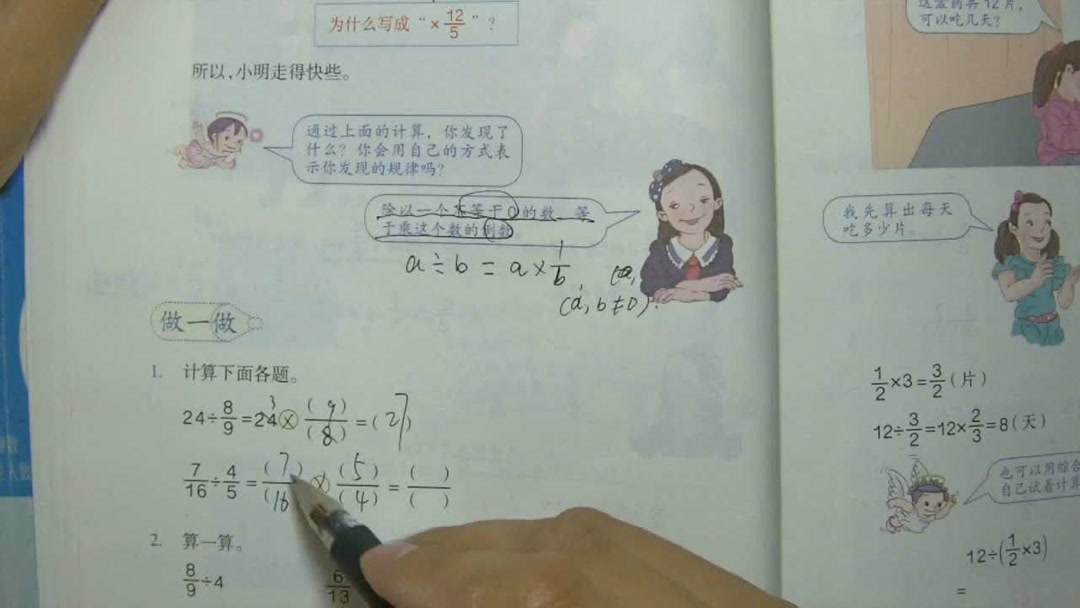 为什么写成“×12/5”？
所以，小明走得快些。
通过上面的计算，你发现了
什么？你会用自己的方式表
示你发现的规律吗？
除以一个不等于0的数，等
于乘这个数的倒数
a÷b=a×1/b,
(a, b≠0).
做一做
1. 计算下面各题。
24÷8/9=24×(9)/(8)=(27)
7/16÷4/5=(7)/(16×(5)/(4)=( )/( )
2. 算一算。
8/9÷4
6/13
12片，
可以吃几天？
我先算出每天
吃多少片
1/2×3=3/2(片)
12÷3/2=12×2/3=8(天)
也可以用综合
自己试着计算
12÷(1/2×3)
=